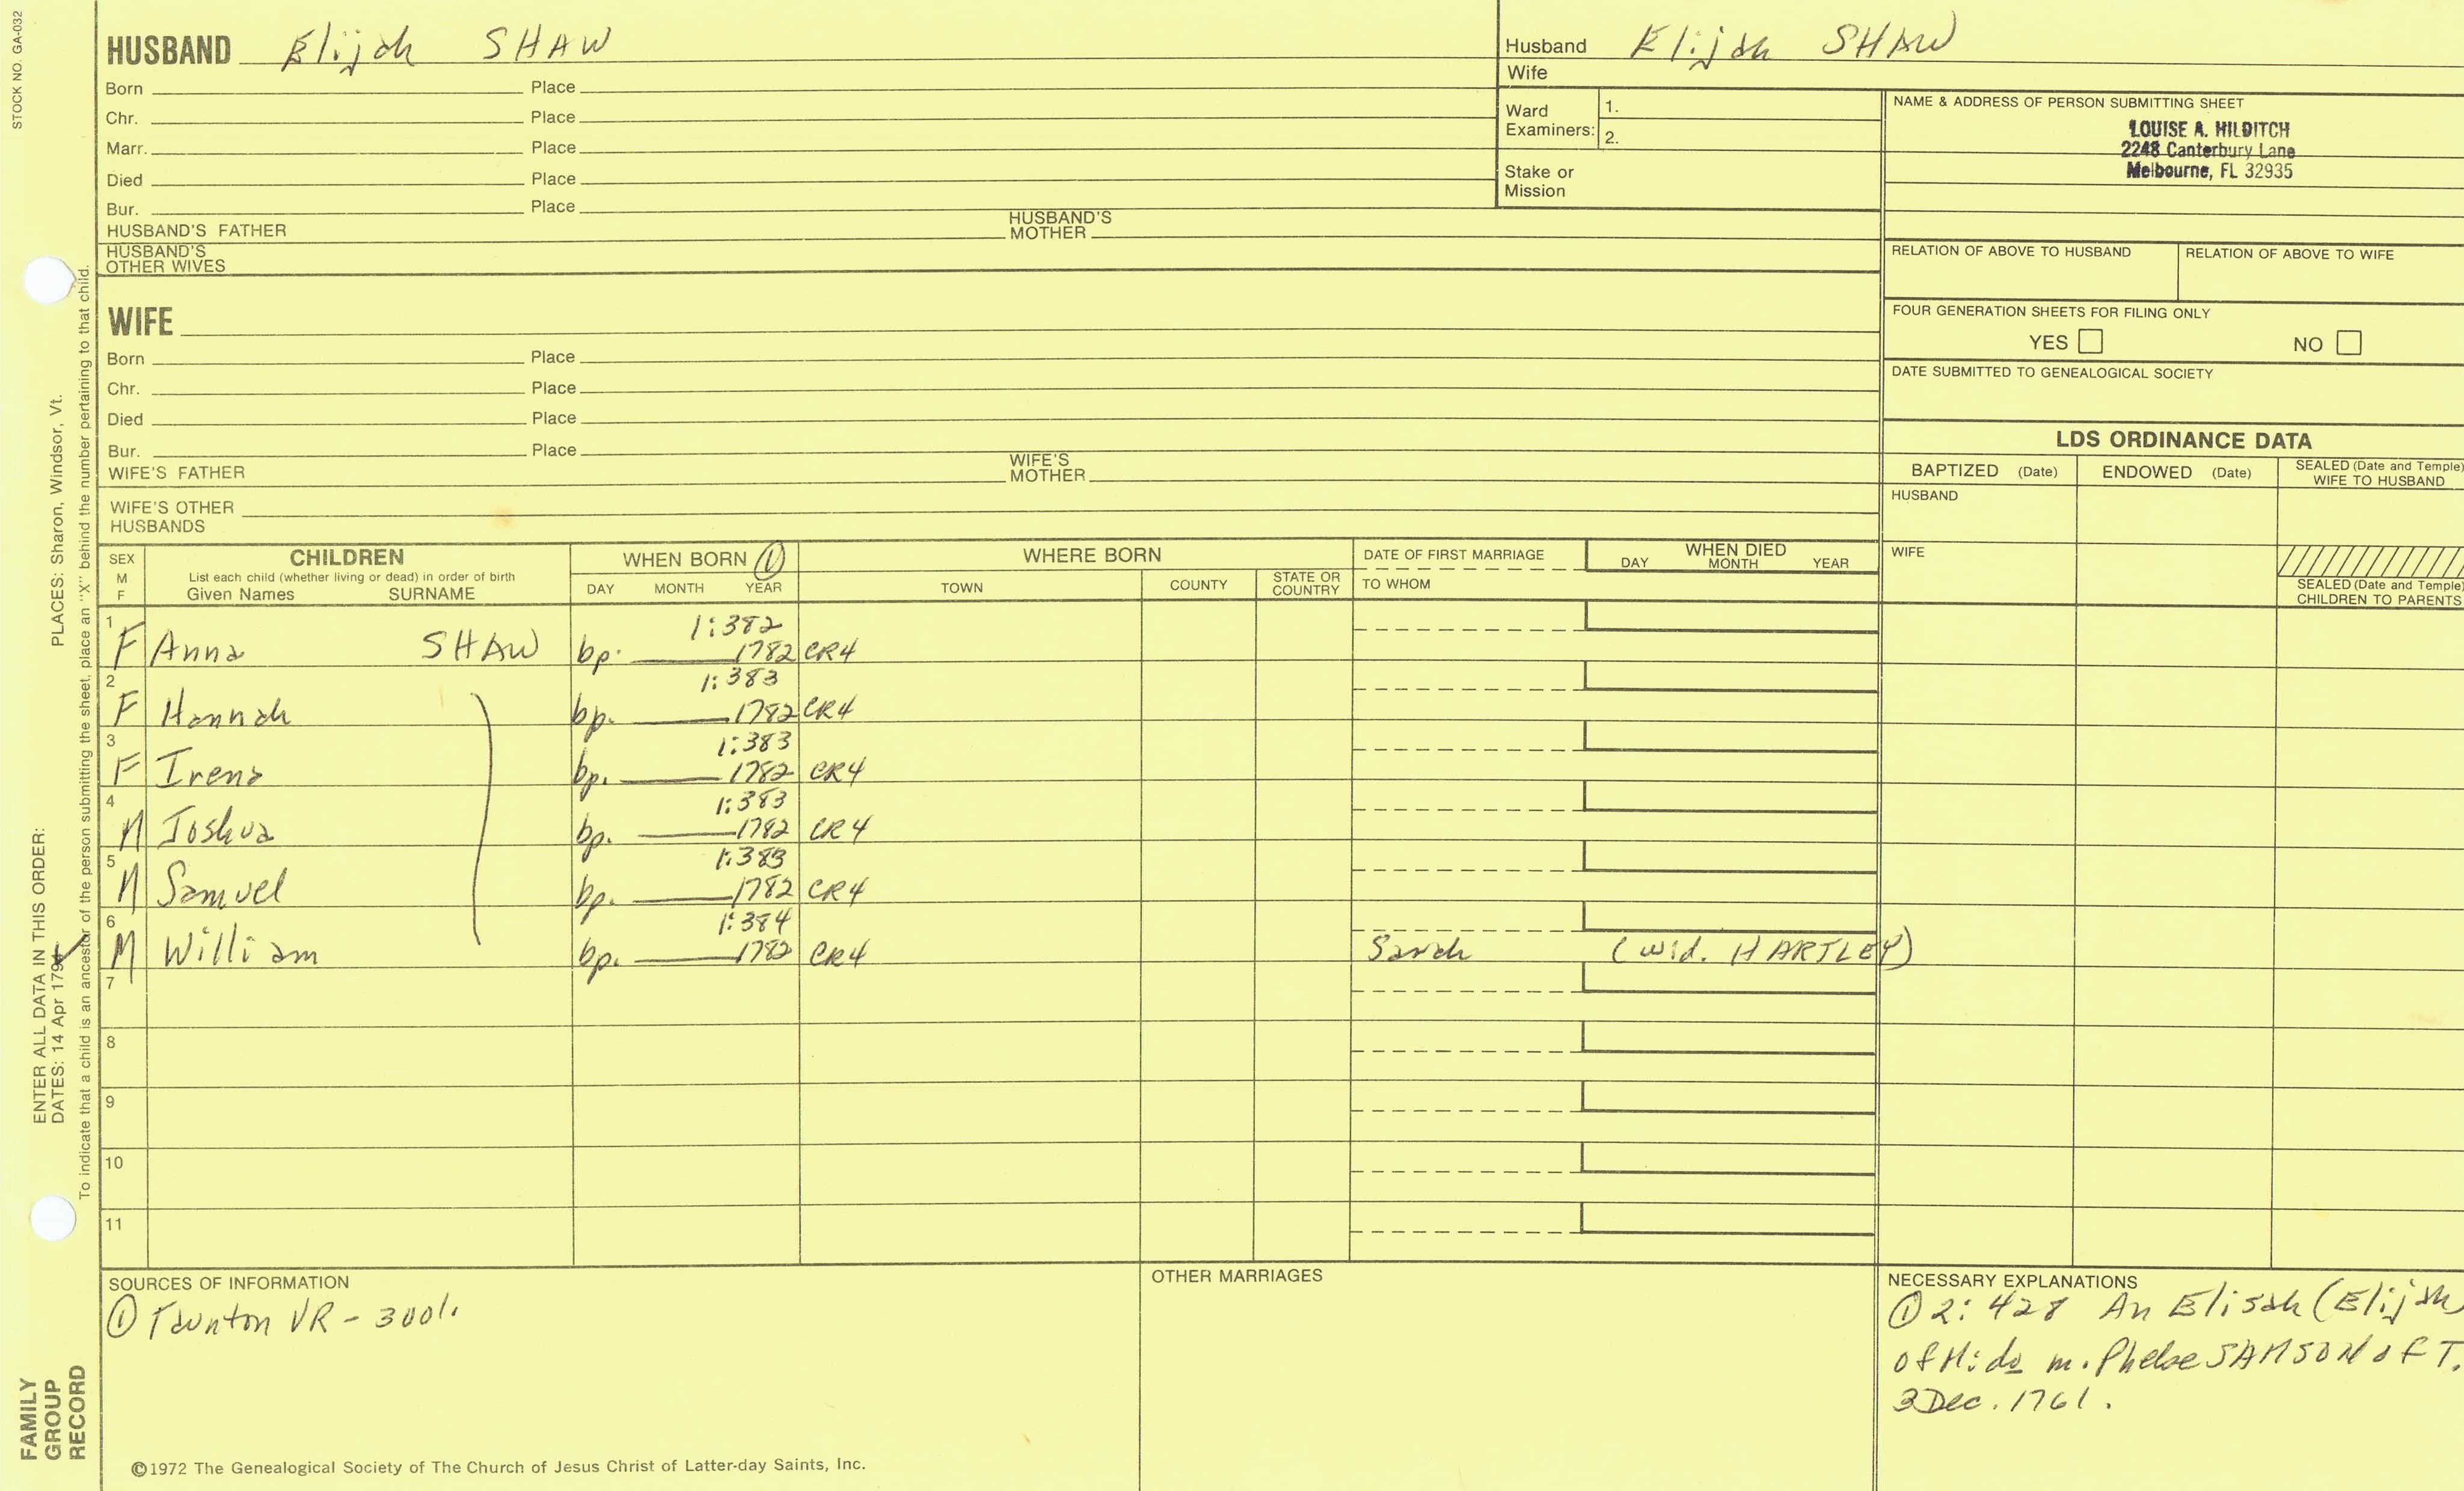 STOCK NO. GA-032
HUSBAND Elijah SHAW
Born Place
Chr. Place
Marr. Place
Died Place
Bur. Place
HUSBAND'S FATHER HUSBAND'S MOTHER
HUSBAND'S OTHER WIVES
WIFE
Born Place
Chr. Place
Died Place
Bur. Place
WIFE'S FATHER WIFE'S MOTHER
WIFE'S OTHER HUSBANDS
Husband Elijah SHAW
Wife
Ward Examiners: 1.
2.
Stake or Mission
NAME & ADDRESS OF PERSON SUBMITTING SHEET
LOUISE A. HILDITCH
2248 Canterbury Lane
Melbourne, FL 32935
RELATION OF ABOVE TO HUSBAND RELATION OF ABOVE TO WIFE
FOUR GENERATION SHEETS FOR FILING ONLY
YES NO
DATE SUBMITTED TO GENEALOGICAL SOCIETY
LDS ORDINANCE DATA
BAPTIZED (Date) ENDOWED (Date) SEALED (Date and Temple) WIFE TO HUSBAND
HUSBAND
WIFE
SEALED (Date and Temple) CHILDREN TO PARENTS
SEX M F CHILDREN WHEN BORN ① WHERE BORN DATE OF FIRST MARRIAGE WHEN DIED
List each child (whether living or dead) in order of birth
Given Names SURNAME DAY MONTH YEAR TOWN COUNTY STATE OR COUNTRY TO WHOM DAY MONTH YEAR
1 1:382
F Anna SHAW bp. 1782 CR4
2 1:383
F Hannah bp. 1782 CR4
3 1:383
F Irena bp. 1782 CR4
4 1:383
M Joshua bp. 1782 CR4
5 1:383
M Samuel bp. 1782 CR4
6 1:384
M William bp. 1782 CR4 Sarah (wid. HARTLEY)
7
8
9
10
11
SOURCES OF INFORMATION
① Taunton VR - 300%.
OTHER MARRIAGES
NECESSARY EXPLANATIONS
① 2: 428 An Elisah (Elijah
of Mid⁠o m. Phebe SAMSON of T.
3 Dec. 1761.
©1972 The Genealogical Society of The Church of Jesus Christ of Latter-day Saints, Inc.
FAMILY
GROUP
RECORD
ENTER ALL DATA IN THIS ORDER:
DATES: 14 Apr 179
PLACES: Sharon, Windsor, Vt.
To indicate that a child is an ancestor of the person submitting the sheet, place an "X" behind the number pertaining to that child.